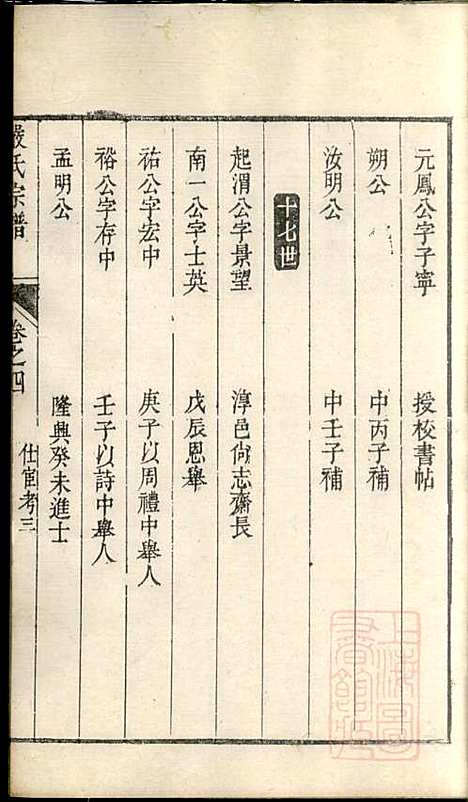 元鳳公字子寧　授校書帖
朔公　中丙子補
汝明公　中壬子補
十七世
起渭公字景望　淳邑尚志齋長
南一公字士英　戊辰恩舉
祐公字宏中　庚子以周禮中舉人
裕公字存中　壬子以詩中舉人
孟明公　隆興癸未進士
嚴氏宗譜　卷之四　仕宦考三
上海圖書館藏